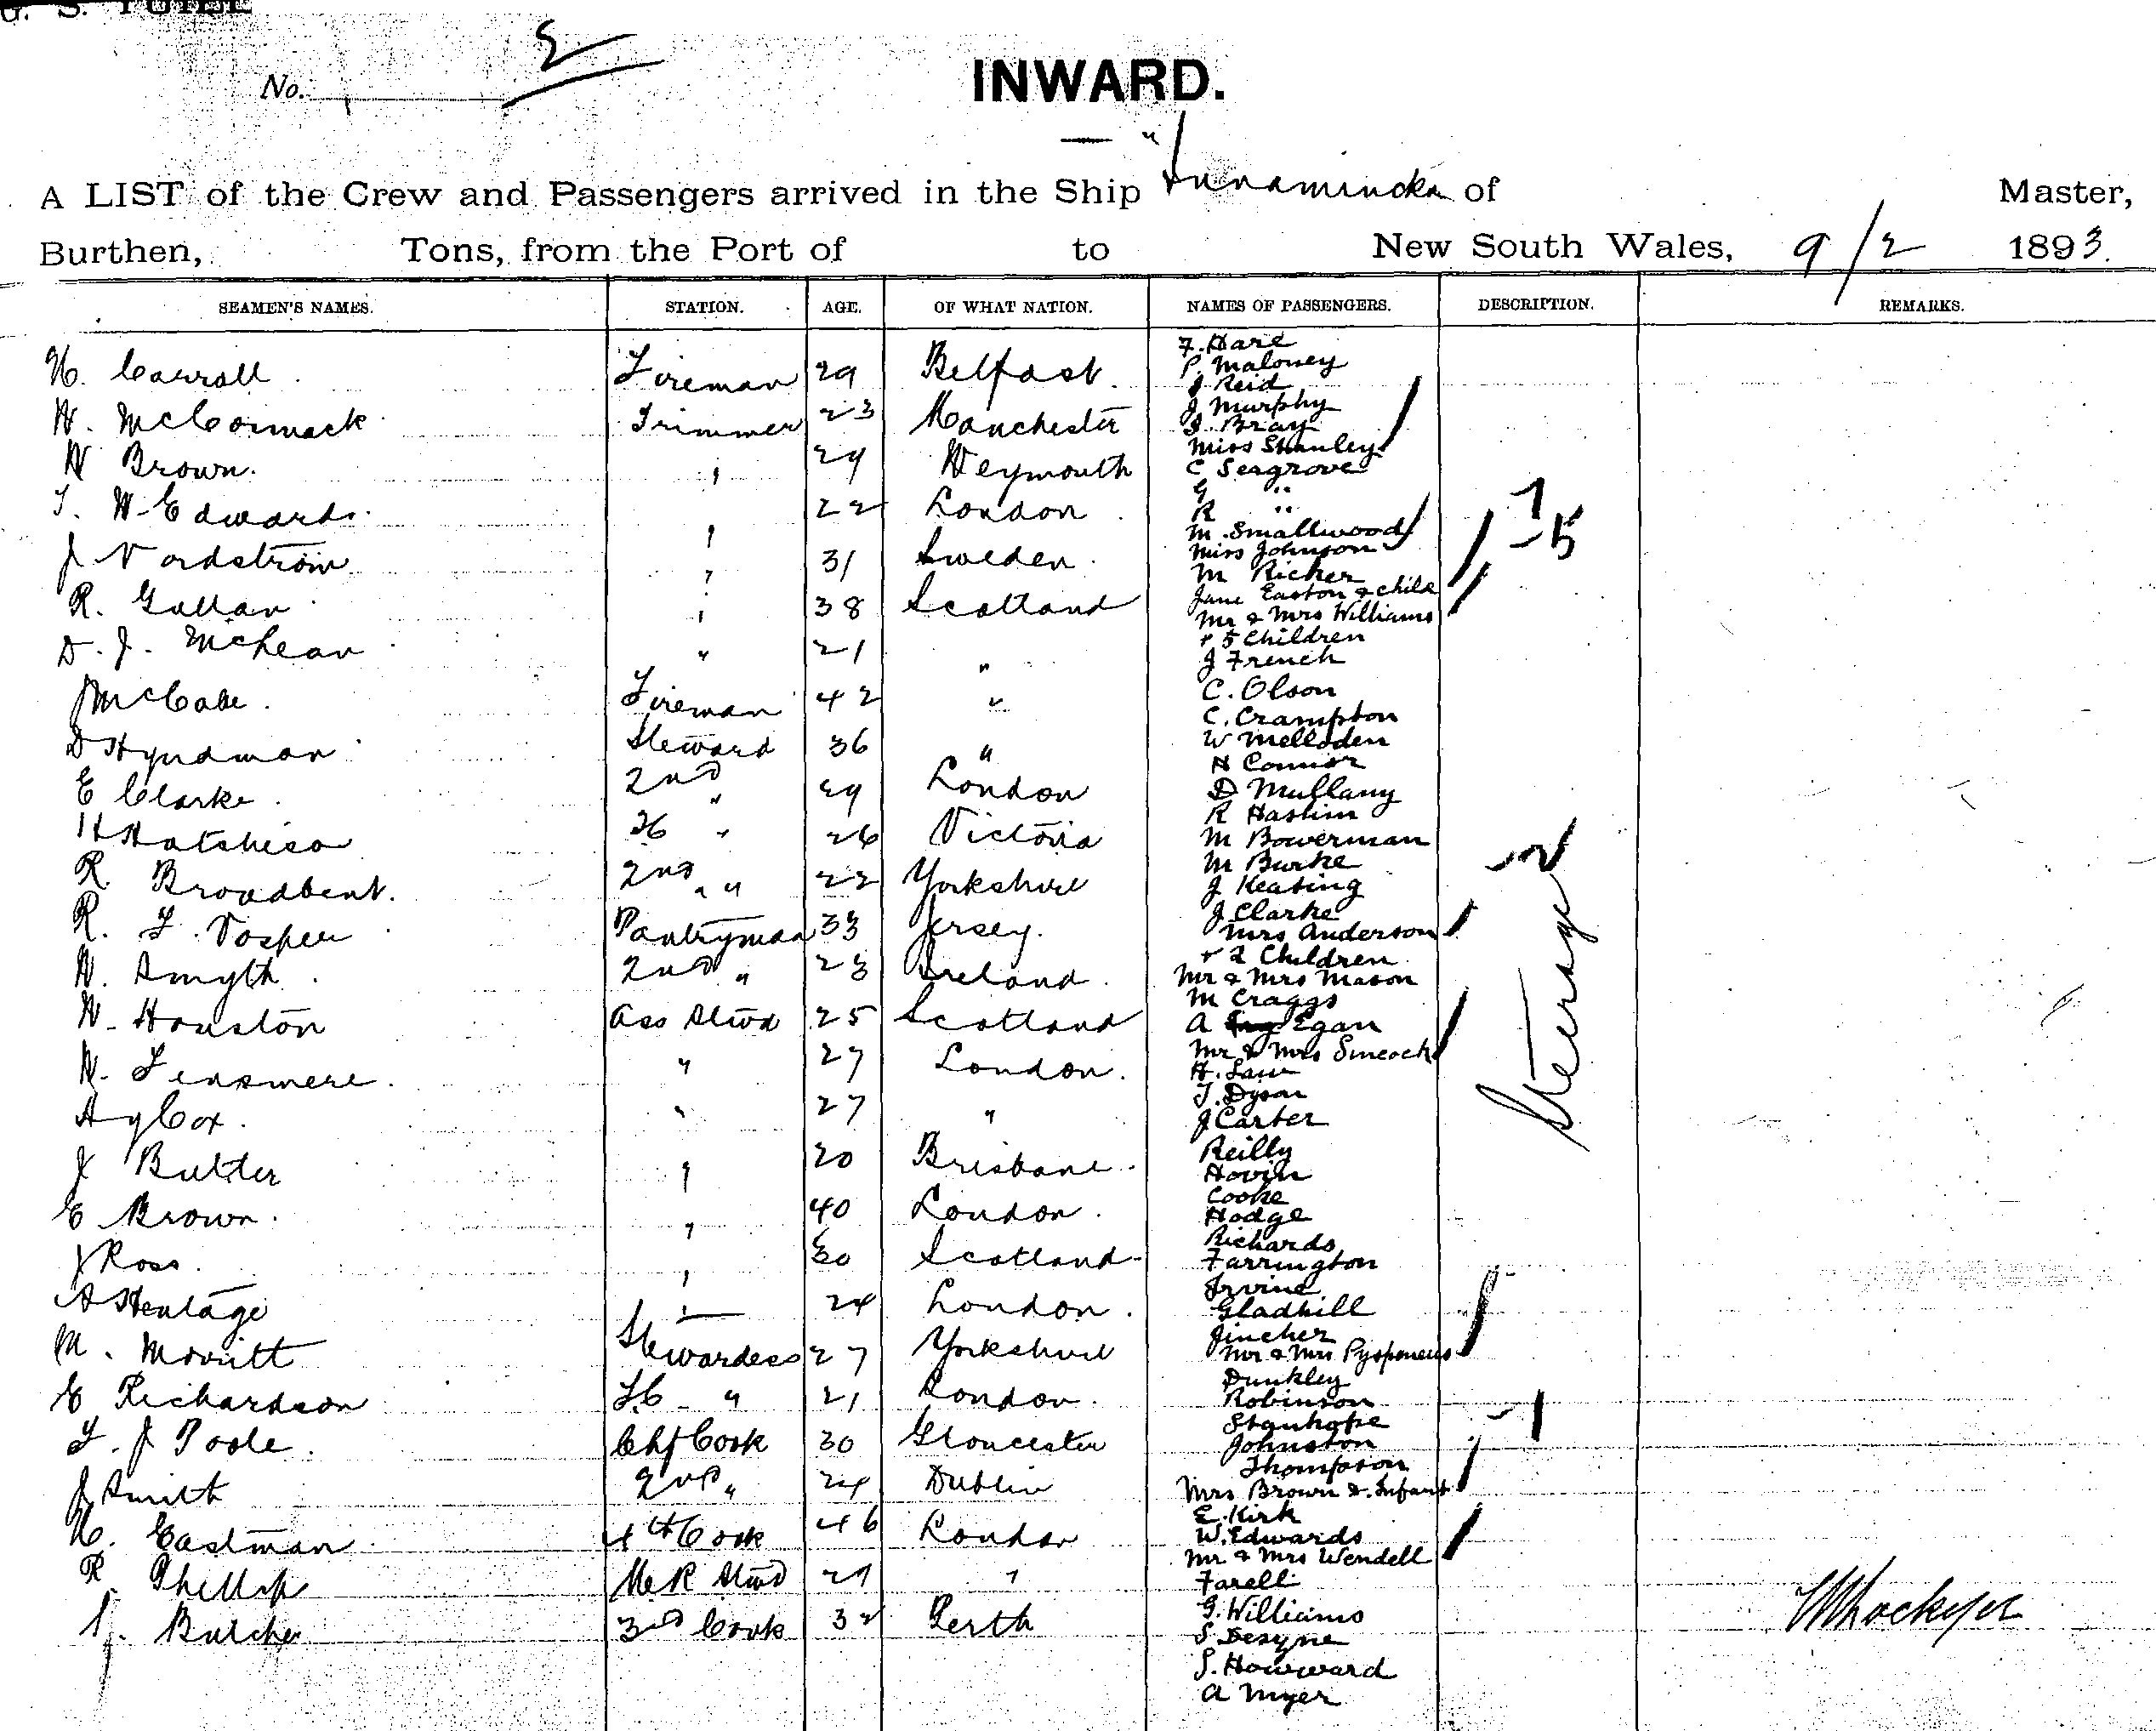 No. 2
INWARD.
A LIST of the Crew and Passengers arrived in the Ship "Innamincka of Master,
Burthen, Tons, from the Port of to New South Wales, 9/2 1893.
SEAMEN'S NAMES. STATION. AGE. OF WHAT NATION. NAMES OF PASSENGERS. DESCRIPTION. REMARKS.
H. Carroll Fireman 29 Belfast
W. McCormack Trimmer 23 Manchester
W Brown " 29 Weymouth
T. W. Edwards " 22 London
J Nordström " 31 Sweden
R. Gullan " 38 Scotland
D. J. McLean " 21 "
J McCabe Fireman 42 "
D Hyndman Steward 36 "
E Clarke 2nd " 29 London
H Hutchison " 26 Victoria
R Broadbent 2nd " 22 Yorkshire
R. F. Vosper Pantryman 33 Jersey
W. Smyth 2nd " 23 Ireland
W. Houston Ass Stwd 25 Scotland
W. " 27 London
A G Cox " 27 "
J Butler " 20 Brisbane
E Brown " 40 London
J Ross " 30 Scotland
A Hentage " 24 London
M. Merritt Stewardess 27 Yorkshire
E Richardson " 21 London
F. J Poole Chf Cook 30 Gloucester
J Smith 2nd " 24 Dublin
H. Eastman 4th Cook 46 London
R Phillip Stwd 29 "
J. Butcher 3rd Cook 32 Perth
F. Hare
P. Maloney
J Reid
J Murphy
J Bray
Miss Stanley
C Seagrove
G "
R "
M. Smallwood
Miss Johnson
M Richer
Jane Easton & child
Mr & Mrs Williams
+ 5 Children
J French
C. Olson
C. Crampton
W Melloden
H Connor
D Mullany
R Haslim
M Bowerman
M Burke
J Keating
J Clarke
Mrs Anderson
+ 2 Children
Mr & Mrs Mason
M Craggs
A Egan
Mr & Mrs Simcock
H. Law
T. Dyson
J Carter
Reilly
Hovin
Cooke
Hodge
Richards
Farrington
Irvine
Gladhill
Jincher
Mr & Mrs
Dunkley
Robinson
Stanhope
Johnston
Thompson
Mrs Brown & Infant
E. Kirk
W. Edwards
Mr & Mrs Wendell
Farell
G. Williams
S Desyne
S. Howward
A Myer
7
5
2
Steerage
1
Lockyer